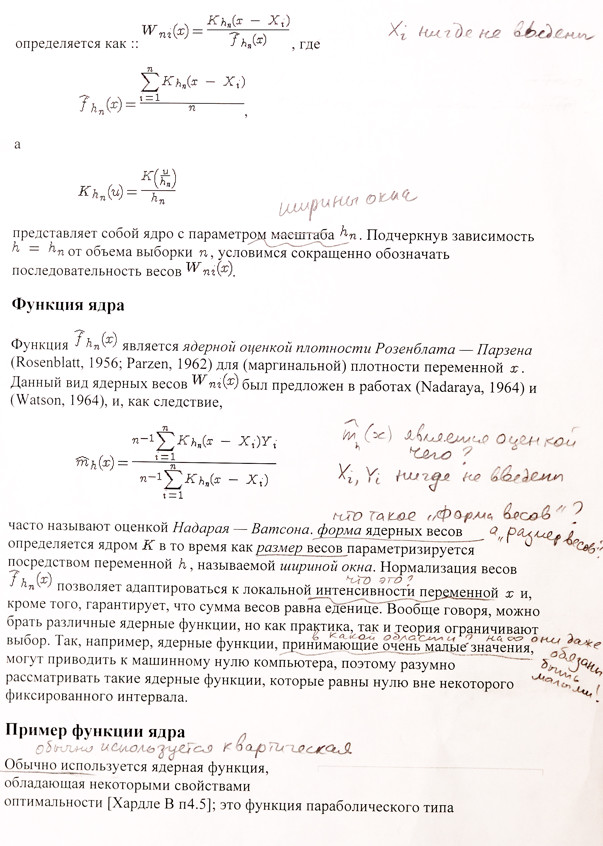 определяется как :: W_{ni}(x) = K_{h_n}(x − X_i) / \hat{f}_{h_n}(x) , где
X_i нигде не введены
\hat{f}_{h_n}(x) = \sum_{i=1}^{n} K_{h_n}(x − X_i) / n ,
а
K_{h_n}(u) = K(u/h_n) / h_n
ширины окна
представляет собой ядро с параметром масштаба h_n. Подчеркнув зависимость
h = h_n от объема выборки n, условимся сокращенно обозначать
последовательность весов W_{ni}(x).
Функция ядра
Функция \hat{f}_{h_n}(x) является ядерной оценкой плотности Розенблата — Парзена
(Rosenblatt, 1956; Parzen, 1962) для (маргинальной) плотности переменной x.
Данный вид ядерных весов W_{ni}(x) был предложен в работах (Nadaraya, 1964) и
(Watson, 1964), и, как следствие,
\hat{m}_h(x) = n^{-1} \sum_{i=1}^{n} K_{h_n}(x − X_i)Y_i / n^{-1} \sum_{i=1}^{n} K_{h_n}(x − X_i)
\hat{m}_h(x) является оценкой
чего?
X_i, Y_i нигде не введены
что такое „форма весов"?
а „размер весов"?
часто называют оценкой Надарая — Ватсона. форма ядерных весов
определяется ядром K в то время как размер весов параметризируется
посредством переменной h, называемой шириной окна. Нормализация весов
что это?
\hat{f}_{h_n}(x) позволяет адаптироваться к локальной интенсивности переменной x и,
кроме того, гарантирует, что сумма весов равна еденице. Вообще говоря, можно
брать различные ядерные функции, но как практика, так и теория ограничивают
в какой области? на ∞ они даже
обязаны
быть
малыми!
выбор. Так, например, ядерные функции, принимающие очень малые значения,
могут приводить к машинному нулю компьютера, поэтому разумно
рассматривать такие ядерные функции, которые равны нулю вне некоторого
фиксированного интервала.
Пример функции ядра
обычно используется квартическая
Обычно используется ядерная функция,
обладающая некоторыми свойствами
оптимальности [Хардле В п4.5]; это функция параболического типа